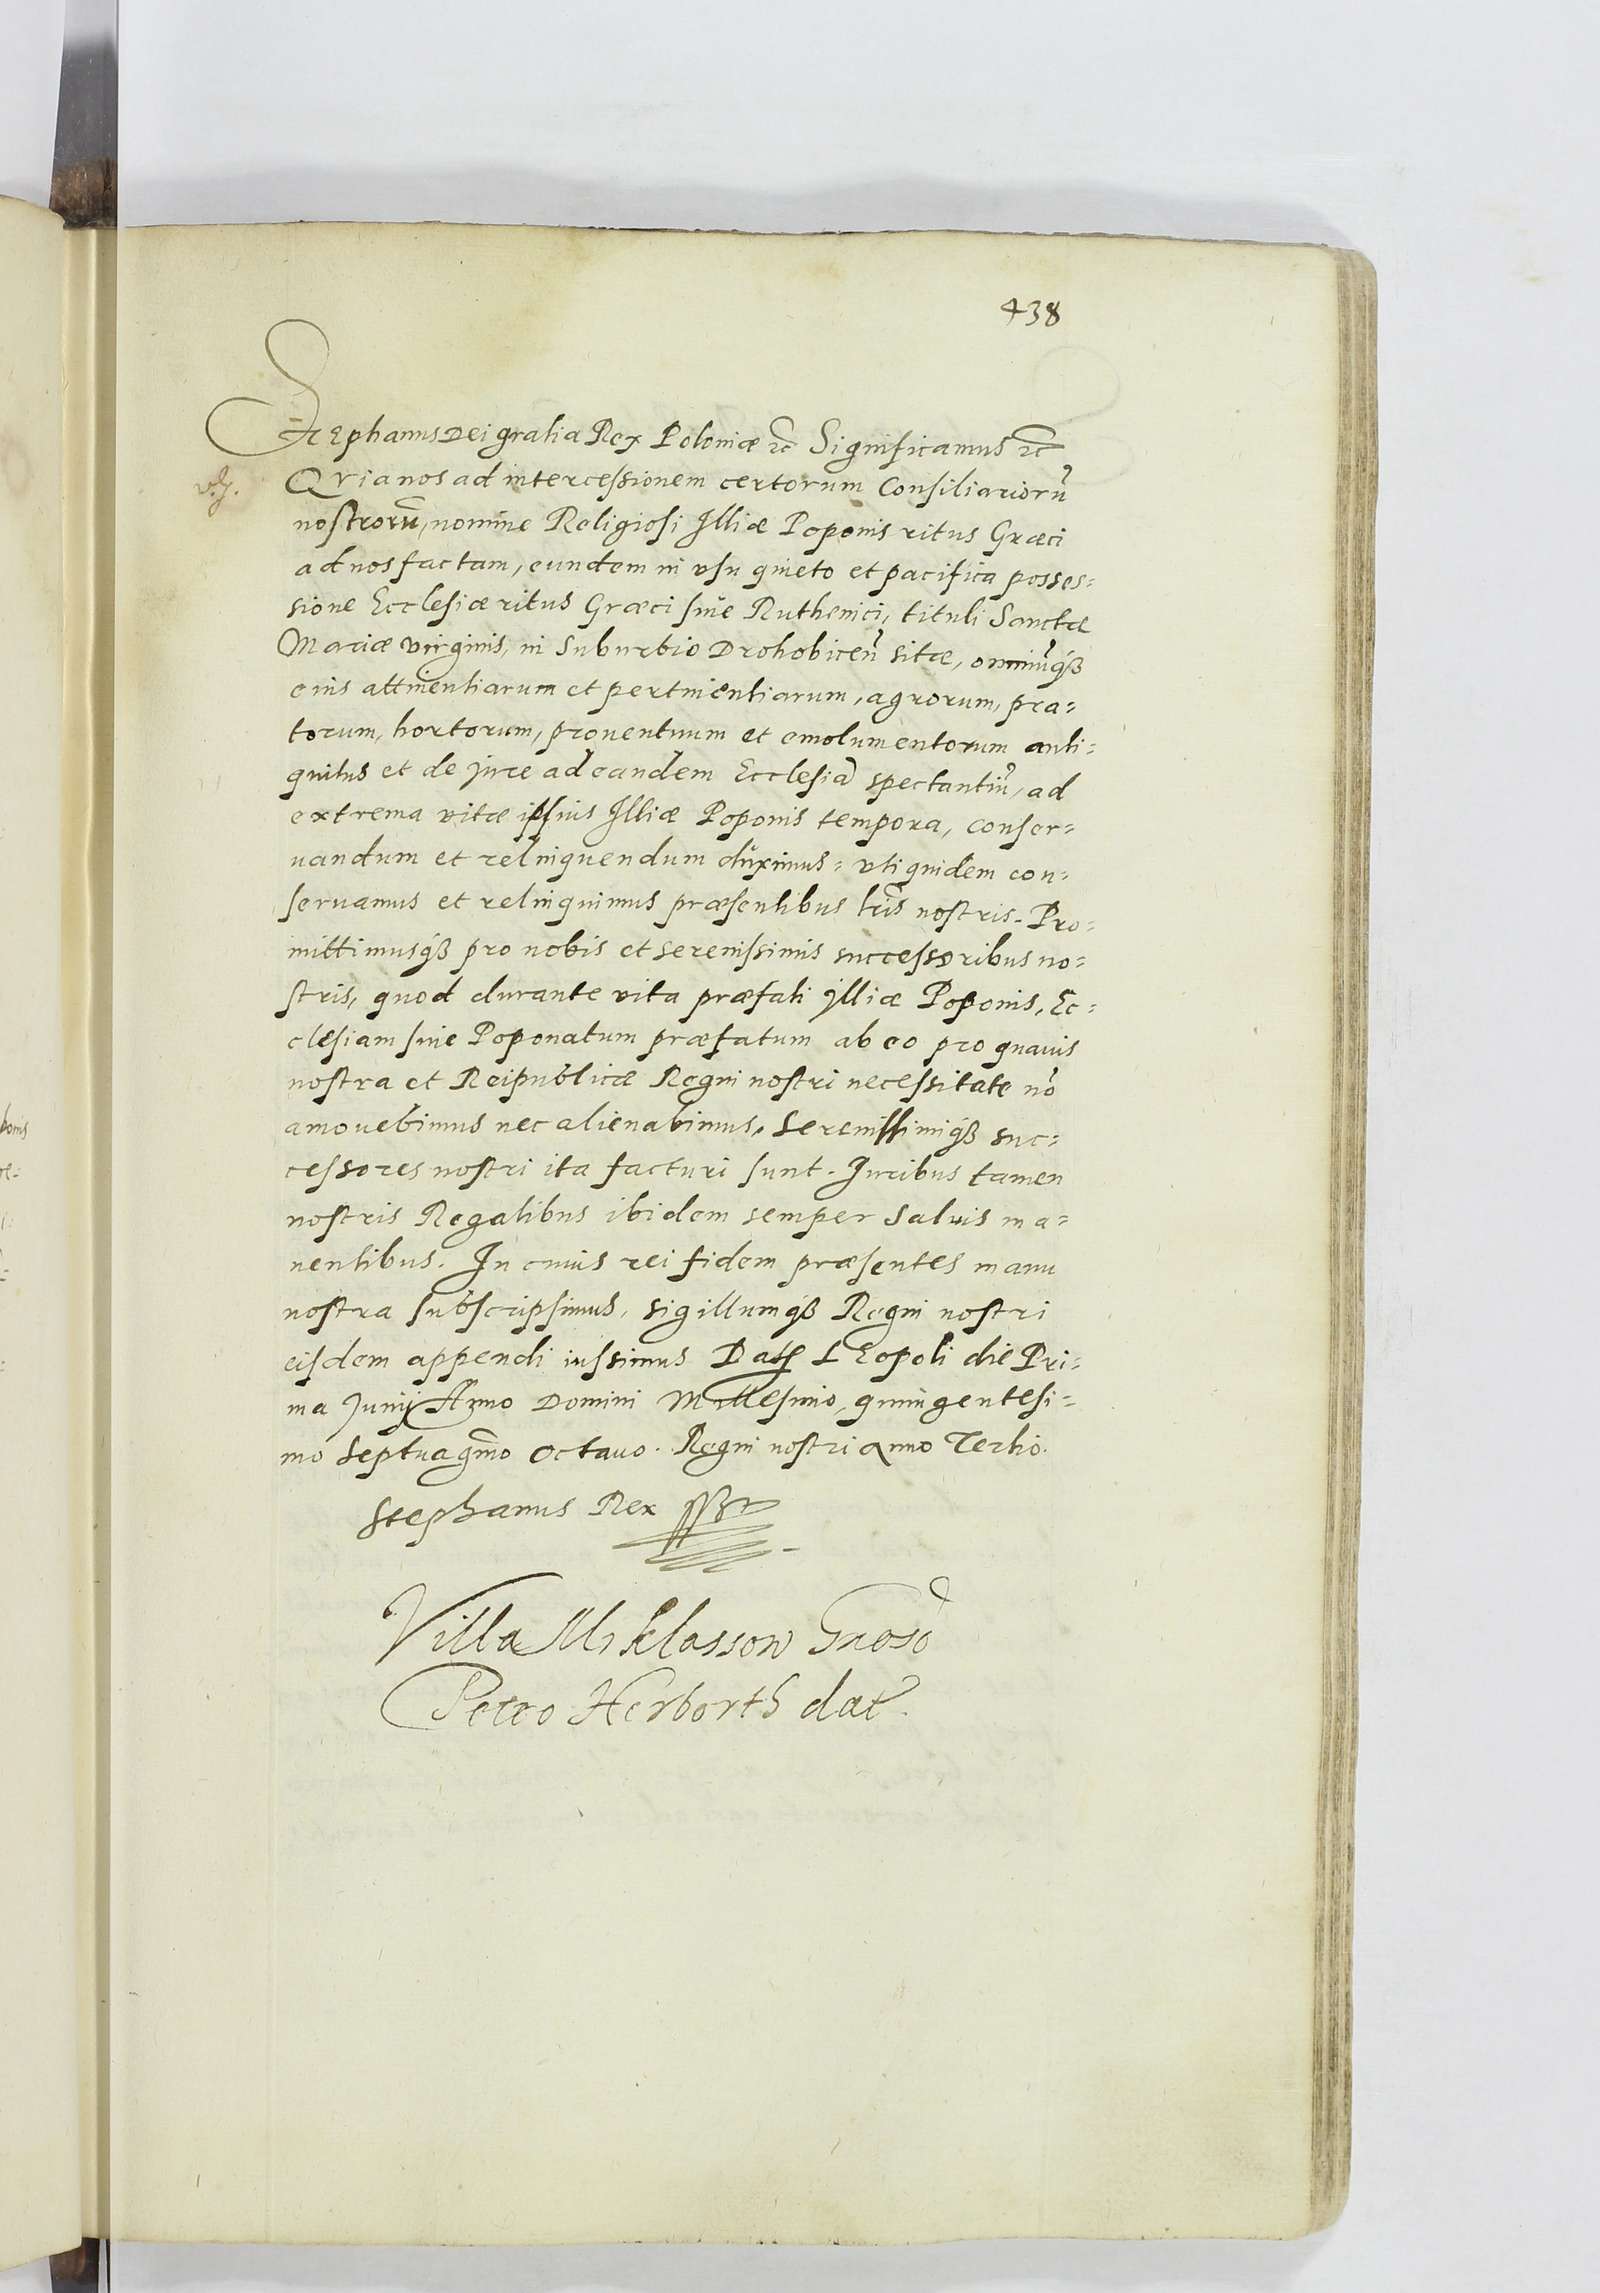 438
Stephanus Dei gratia Rex Poloniæ etc Significamus etc
Quia nos ad intercessionem certorum Consiliariorū
nostrorū, nomine Religiosi Illiæ Poponis ritus Græci
ad nos factam, eundem in usu quieto et pacifica posses=
sione Ecclesiæ ritus Græci siue Ruthenici, tituli Sanctæ
Mariæ virginis, in Suburbio Drohobicen̄ sitæ, omniūq3
eius attinentiarum et pertinentiarum, agrorum, pra=
torum, hortorum, prouentuum et emolumentorum anti=
quitus et de jure ad eandem Ecclesiā spectantiū, ad
extrema vitæ ipsius Illiæ Poponis tempora, conser=
uandum et relinquendum duximus= vti quidem con=
seruamus et relinquimus præsentibus lr̄is nostris. Pro=
mittimusq3 pro nobis et serenissimis successoribus no=
stris, quod durante vita præfati Illiæ Poponis, Ec=
clesiam siue Poponatum præfatum ab eo pro quauis
nostra et Reipublicæ Regni nostri necessitate nō
amouebimus nec alienabimus, Serenissimiq3 suc=
cessores nostri ita facturi sunt. Juribus tamen
nostris Regalibus ibidem semper saluis ma=
nentibus. In cuius rei fidem præsentes manu
nostra subscripsimus, sigillumq3 Regni nostri
eisdem appendi iussimus Dat Leopoli die Pri=
ma Junij Anno Domini Millesimo, quingentesi=
mo septuagm̄o octauo. Regni nostri anno Tertio.
Stephanus Rex sst
Villa Miklassow Gnoso
Petro Herborth dat̄.